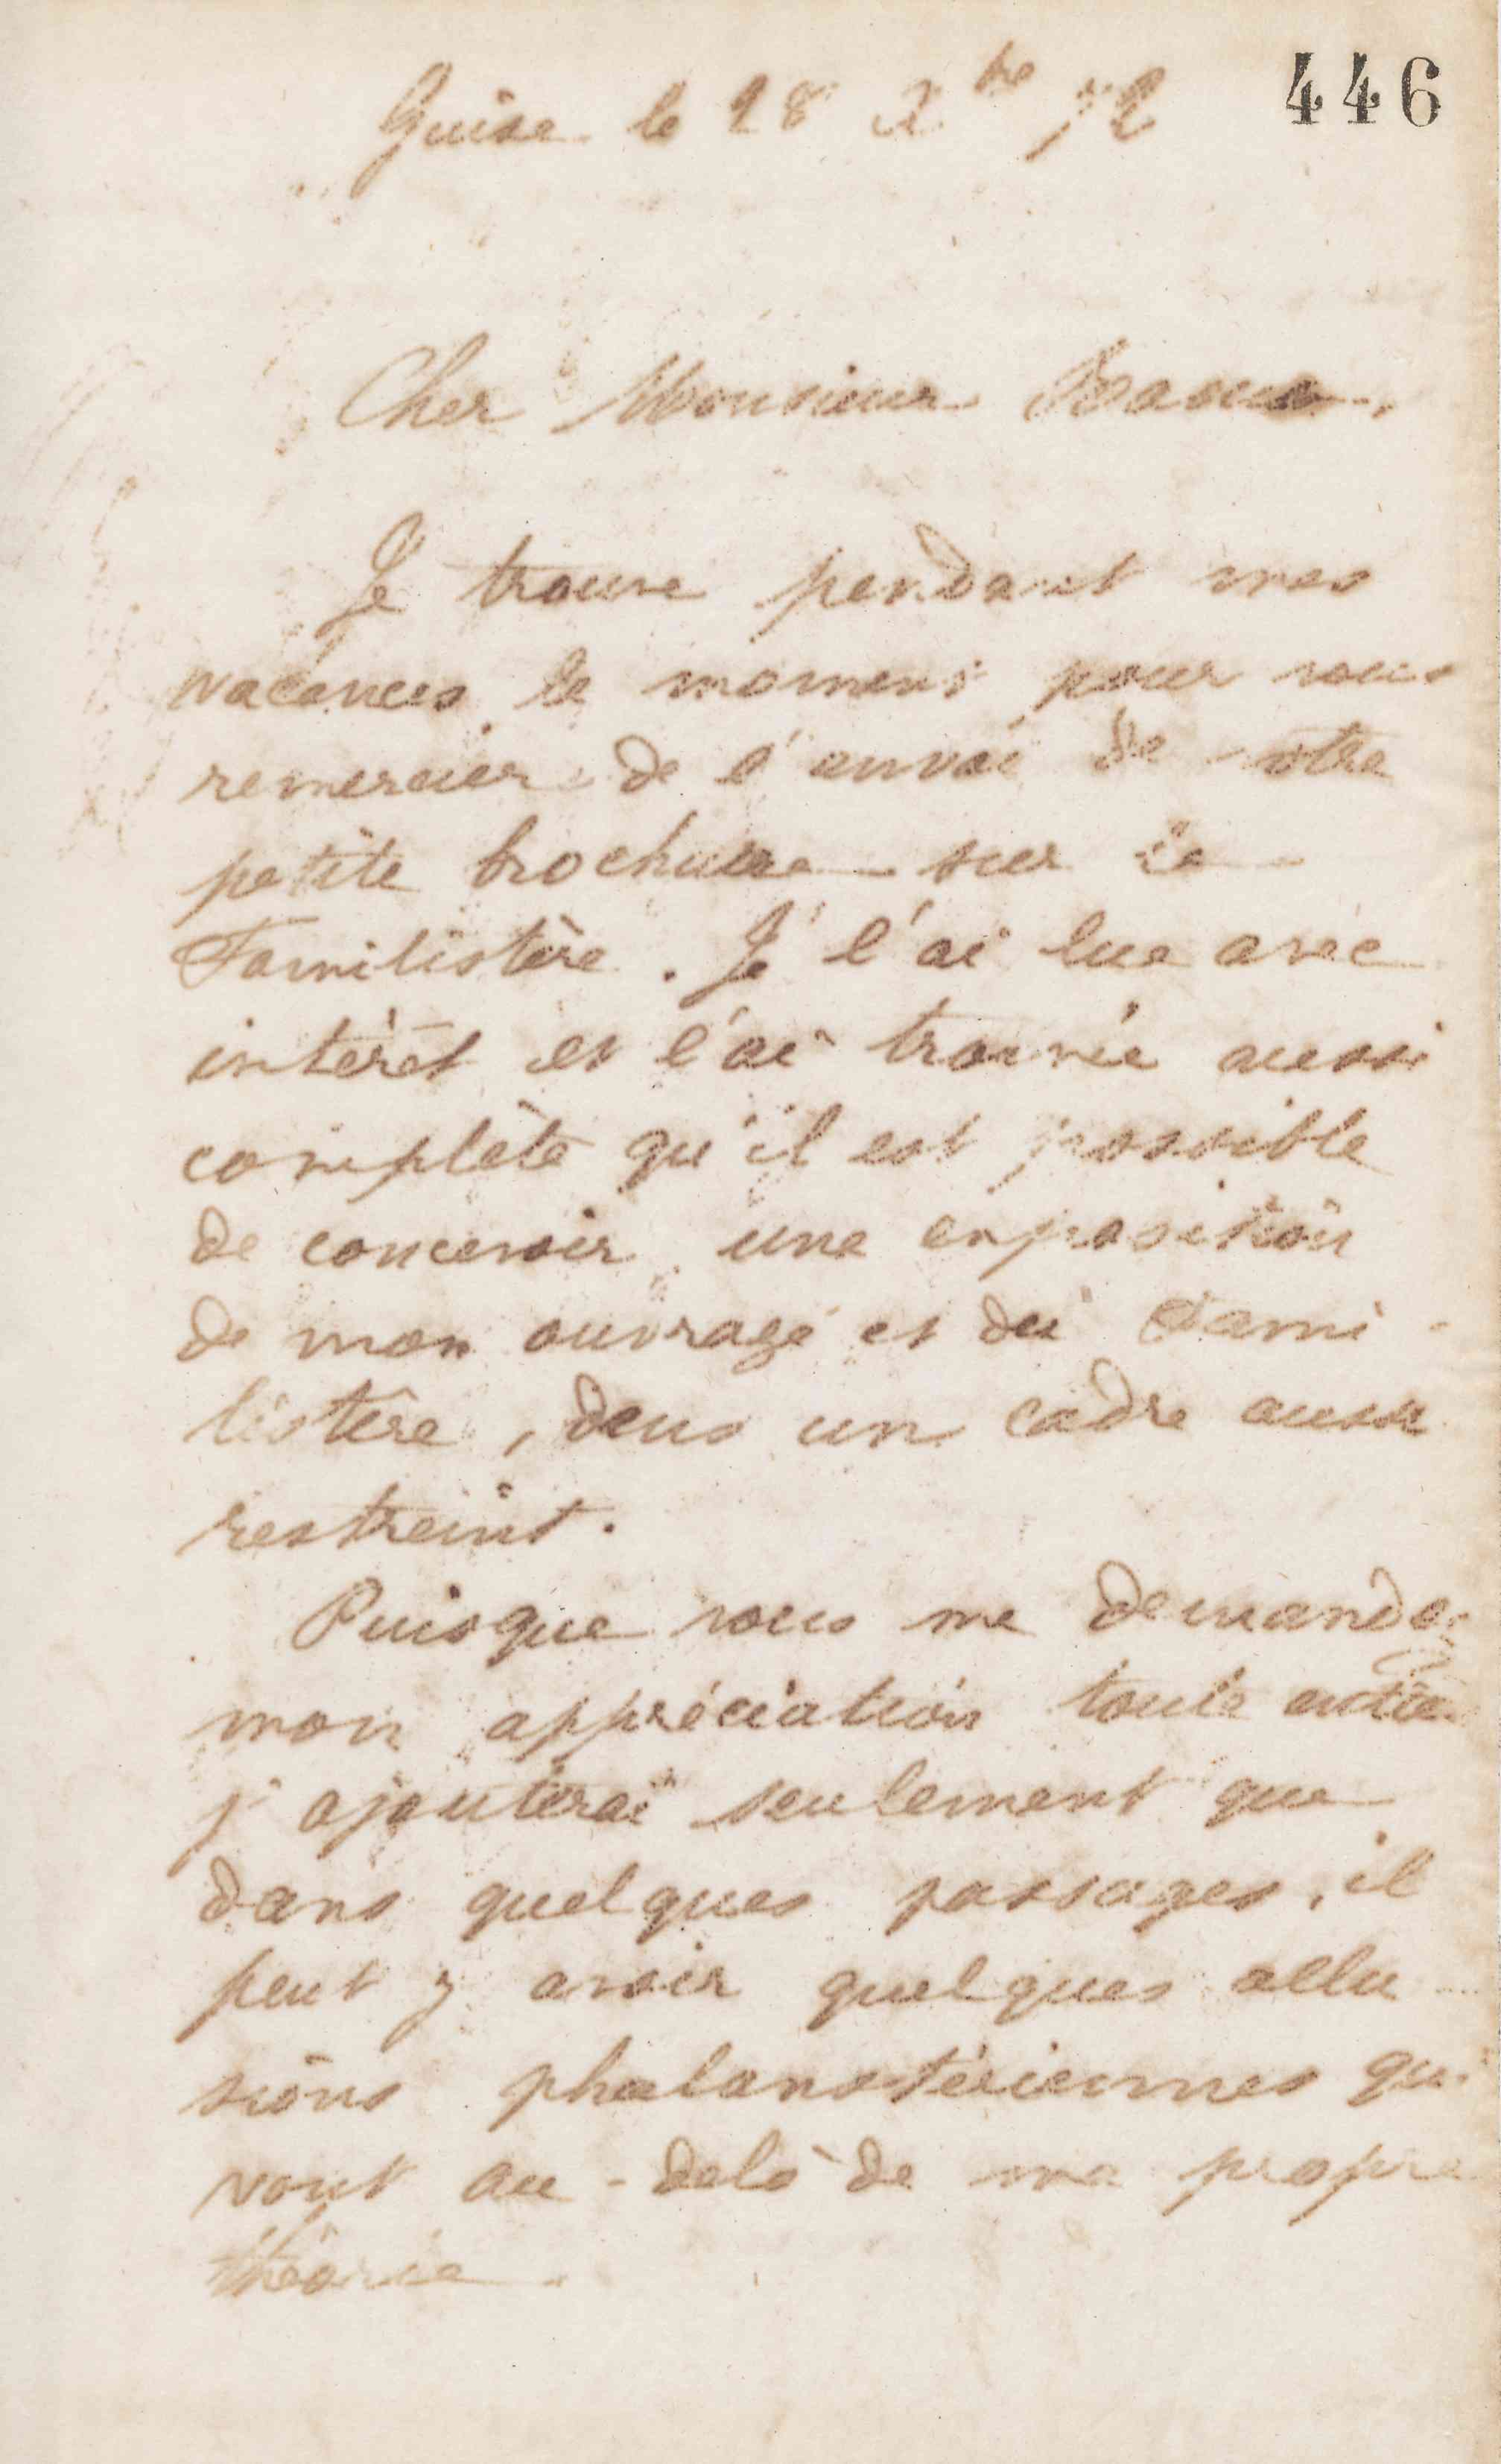 446
Guise le 28 Xbre 72
Cher Monsieur
Je trouve pendant mes
vacances le moment pour vous
remercier de l'envoi de votre
petite brochure sur le
Familistère. Je l'ai lue avec
intérêt et l'ai trouvée aussi
complète qu'il est possible
de concevoir une exposition
de mon ouvrage et du Fami-
listère, dans un cadre aussi
restreint.
Puisque vous me demandez
mon appréciation toute entière
j'ajouterai seulement que
dans quelques passages, il
peut y avoir quelques allu-
sions phalanstériennes qui
vont au-delà de ma propre
théorie.